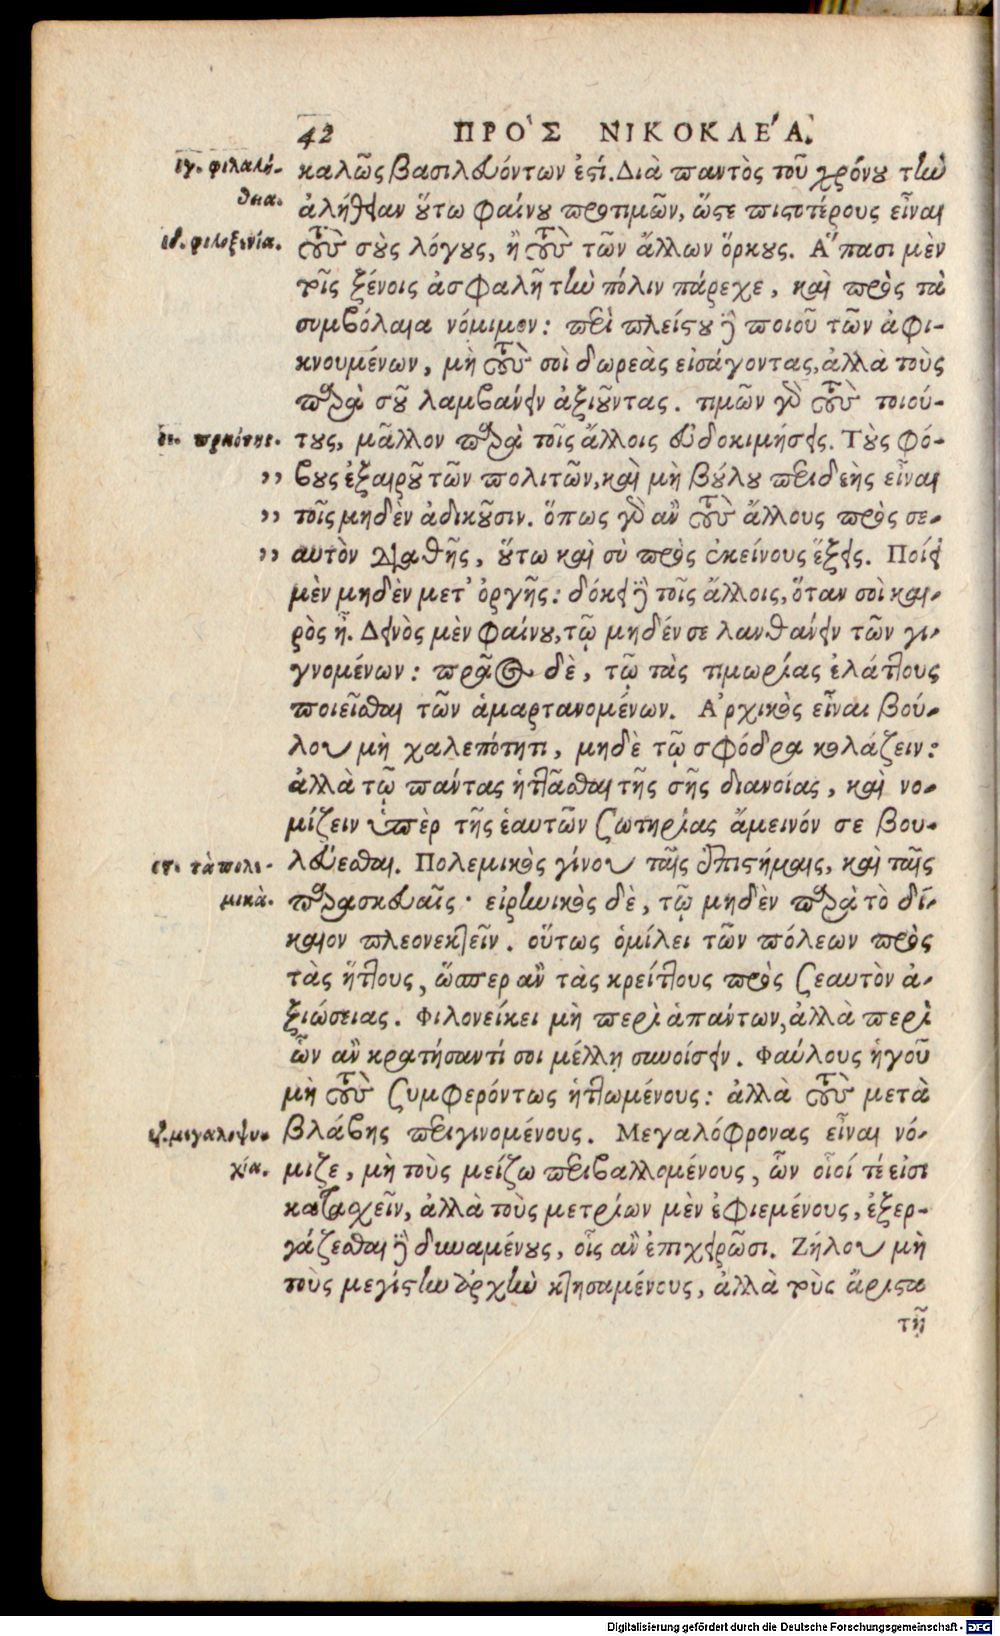 42 ΠΡΟ῾Σ ΝΙΚΟΚΛΕ΄Α.
ιγ. φιλαλή- καλῶς βασιλευόντων ἐστί. Διὰ παντὸς τοῦ χρόνου τὴν
θεια. ἀλήθειαν οὕτω φαίνου προτιμῶν, ὥστε πιστοτέρους εἶναι
ιδ. φιλοξενία. τοὺς σοὺς λόγους, ἢ τοὺς τῶν ἄλλων ὅρκους. Α῞πασι μὲν
τοῖς ξένοις ἀσφαλῆ τὴν πόλιν πάρεχε, καὶ πρὸς τὰ
συμβόλαια νόμιμον: περὶ πλείστου δὲ ποιοῦ τῶν ἀφι-
κνουμένων, μὴ τοὺς σοὶ δωρεὰς εἰσάγοντας, ἀλλὰ τοὺς
παρὰ σοῦ λαμβάνειν ἀξιοῦντας. τιμῶν γὰρ τοὺς τοιού-
ιε. πρᾳότης. τους, μᾶλλον παρὰ τοῖς ἄλλοις εὐδοκιμήσεις. Τοὺς φό-
,, βους ἐξαιροῦ τῶν πολιτῶν, καὶ μὴ βούλου περιδεὴς εἶναι
,, τοῖς μηδὲν ἀδικοῦσιν. ὅπως γὰρ ἂν τοὺς ἄλλους πρὸς σε-
,, αυτὸν διαθῇς, οὕτω καὶ σὺ πρὸς ἐκείνους ἕξεις. Ποίει
μὲν μηδὲν μετ' ὀργῆς: δόκει δὲ τοῖς ἄλλοις, ὅταν σοὶ και-
ρὸς ᾖ. Δεινὸς μὲν φαίνου, τῷ μηδέν σε λανθάνειν τῶν γι-
γνομένων: πρᾶος δὲ, τῷ τὰς τιμωρίας ἐλάττους
ποιεῖσθαι τῶν ἁμαρτανομένων. Α᾿ρχικὸς εἶναι βού-
λου μὴ χαλεπότητι, μηδὲ τῷ σφόδρα κολάζειν:
ἀλλὰ τῷ πάντας ἡττᾶσθαι τῆς σῆς διανοίας, καὶ νο-
μίζειν ὑπὲρ τῆς ἑαυτῶν σωτηρίας ἄμεινόν σε βου-
ιϛ. τὰ πολε- λεύεσθαι. Πολεμικὸς γίνου ταῖς ἐπιστήμαις, καὶ ταῖς
μικὰ. παρασκευαῖς· εἰρηνικὸς δὲ, τῷ μηδὲν παρὰ τὸ δί-
καιον πλεονεκτεῖν. οὕτως ὁμίλει τῶν πόλεων πρὸς
τὰς ἥττους, ὥσπερ ἂν τὰς κρείττους πρὸς σεαυτὸν ἀ-
ξιώσειας. Φιλονείκει μὴ περὶ ἁπάντων, ἀλλὰ περὶ
ὧν ἂν κρατήσαντί σοι μέλλῃ συνοίσειν. Φαύλους ἡγοῦ
μὴ τοὺς συμφερόντως ἡττωμένους: ἀλλὰ τοὺς μετὰ
ιζ. μεγαλοψυ- βλάβης περιγινομένους. Μεγαλόφρονας εἶναι νό-
χία. μιζε, μὴ τοὺς μείζω περιβαλλομένους, ὧν οἷοί τέ εἰσι
κατασχεῖν, ἀλλὰ τοὺς μετρίων μὲν ἐφιεμένους, ἐξερ-
γάζεσθαι δὲ δυναμένους, οἷς ἂν ἐπιχειρῶσι. Ζήλου μὴ
τοὺς μεγίστην ἀρχὴν κτησαμένους, ἀλλὰ τοὺς ἄριστα
τῇ
Digitalisierung gefördert durch die Deutsche Forschungsgemeinschaft - DFG